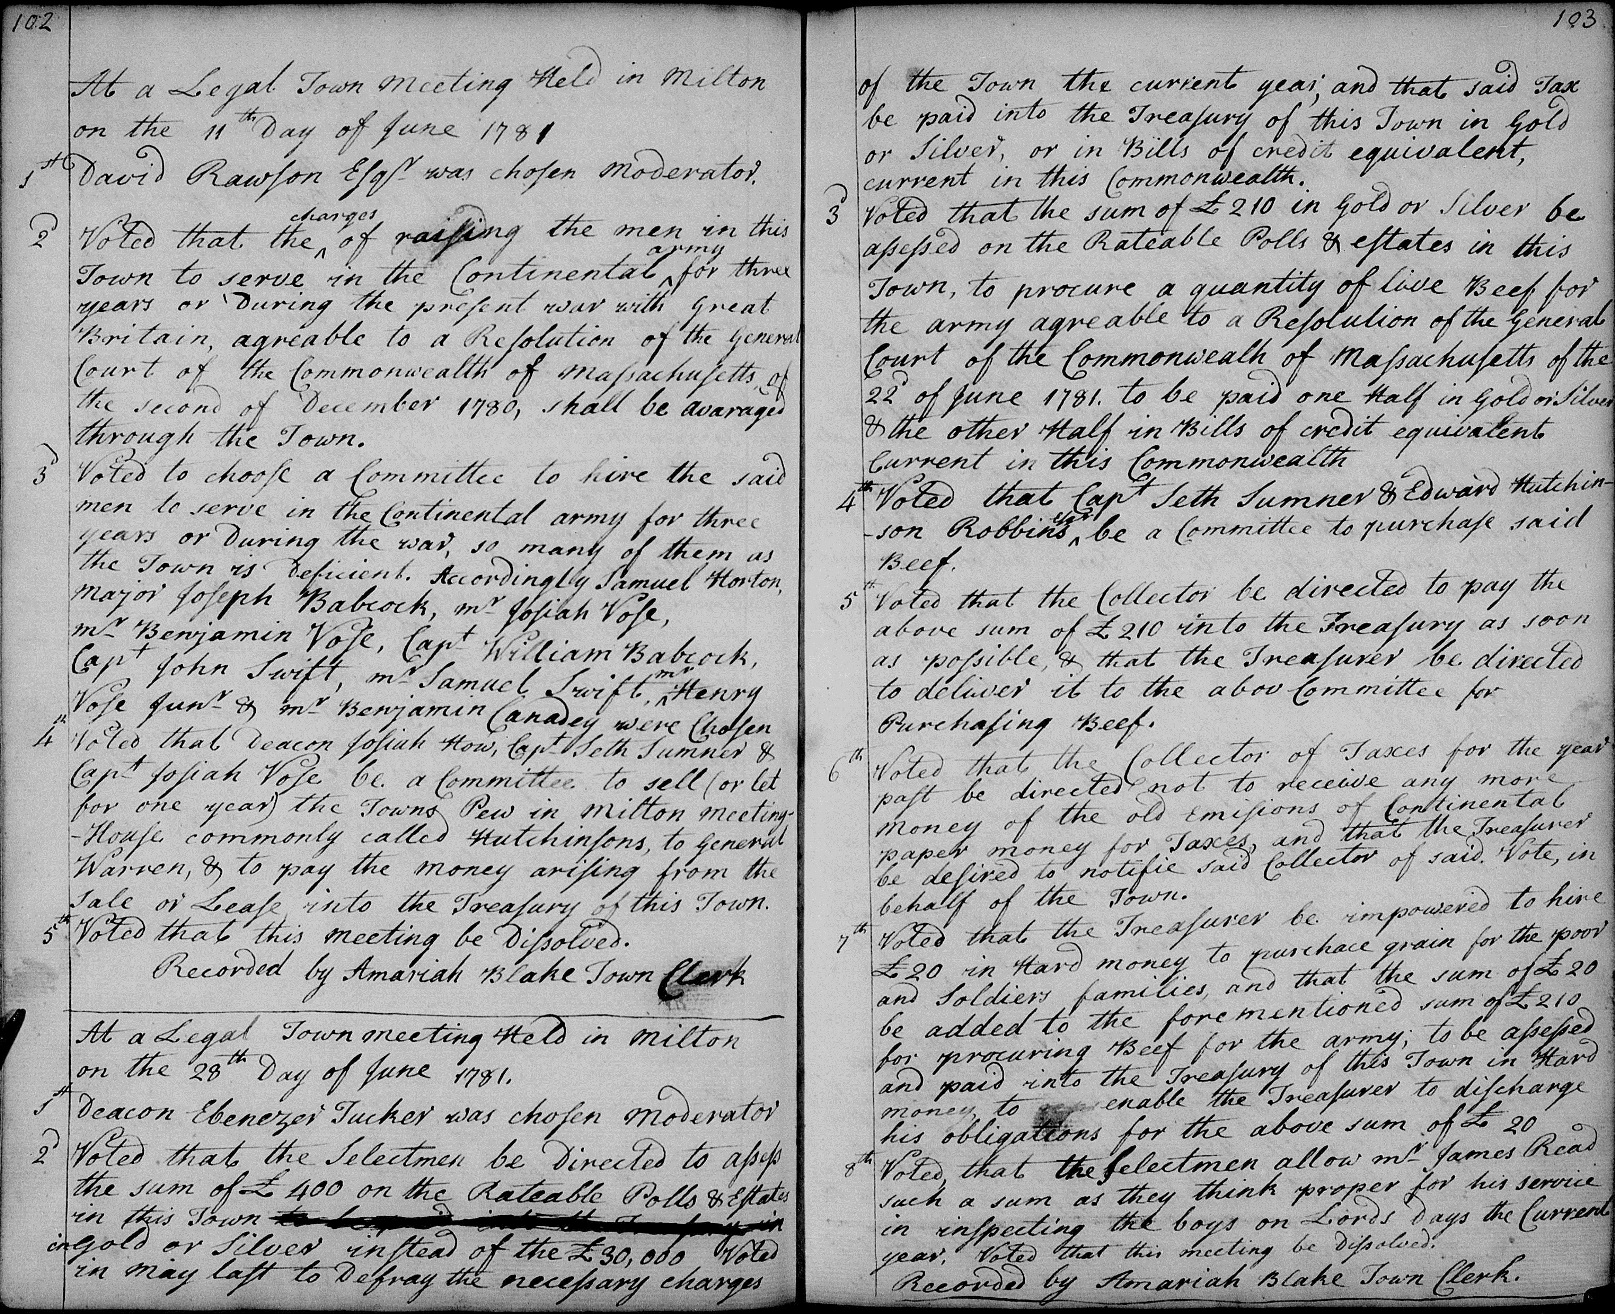 102
At a Legal Town meeting Held in Milton
on the 11th Day of June 1781
1st David Rawson Esqr was chosen moderator.
2d Voted that the charges of raising the men in this
Town to serve in the Continental army for three
years or During the present war with Great
Britain, agreable to a Resolution of the General
Court of the Commonwealth of Massachusetts, of
the second of December 1780, shall be avaraged
through the Town.
3d Voted to choose a Committee to hire the said
men to serve in the Continental army for three
years or During the war, so many of them as
the Town is Deficient. Accordingly Samuel Horton,
major Joseph Babcock, mr Josiah Vose,
mr Benjamin Vose, Capt William Babcock,
Capt John Swift, mr Samuel Swift, mr Henry
Vose Junr & mr Benjamin Canadey were Chosen
4th Voted that Deacon Josiah How, Capt Seth Sumner &
Capt Josiah Vose be a Committee to sell (or let
for one year) the Towns Pew in Milton meeting-
-House commonly called Hutchinsons, to General
Warren, & to pay the money arising from the
Sale or Lease into the Treasury of this Town.
5th Voted that this meeting be Dissolved.
Recorded by Amariah Blake Town Clerk
At a Legal Town meeting Held in milton
on the 28th Day of June 1781.
1st Deacon Ebenezer Tucker was chosen moderator
2d Voted that the Selectmen be Directed to assess
the sum of £400 on the Rateable Polls & Estates
in this Town to be paid into the Treasury in
in Gold or Silver instead of the £30,000 Voted
in may last to Defray the necessary charges
103
of the Town the current year, and that said Tax
be paid into the Treasury of this Town in Gold
or Silver, or in Bills of credit equivalent,
current in this Commonwealth.
3d Voted that the sum of £210 in Gold or Silver be
assessed on the Rateable Polls & estates in this
Town, to procure a quantity of live Beef for
the army agreable to a Resolution of the General
Court of the Commonwealh of Massachusetts of the
22d of June 1781. to be paid one Half in Gold or Silver
& the other Half in Bills of credit equivalent
Current in this Commonwealth
4th Voted that Capt Seth Sumner & Edward Hutchin-
-son Robbins Esqr be a Committee to purchase said
Beef.
5th Voted that the Collector be directed to pay the
above sum of £210 into the Treasury as soon
as possible, & that the Treasurer be directed
to deliver it to the abov Committee for
Purchasing Beef.
6th Voted that the Collector of Taxes for the year
past be directed not to receive any more
money of the old Emisions of Continental
paper money for Taxes, and that the Treasurer
be desired to notifie said Collector of said Vote, in
behalf of the Town.
7th Voted that the Treasurer be impowered to hire
£20 in Hard money to purchace grain for the poor
and Soldiers families, and that the sum of £20
be added to the forementioned sum of £210
for procuring Beef for the army; to be assessed
and paid into the Treasury of this Town in Hard
money, to enable the Treasurer to discharge
his obligations for the above sum of £20
8th Voted, that the Selectmen allow mr James Read
such a sum as they think proper for his service
in inspecting the boys on Lords Days the Current
year. Voted that this meeting be Dissolved.
Recorded by Amariah Blake Town Clerk.